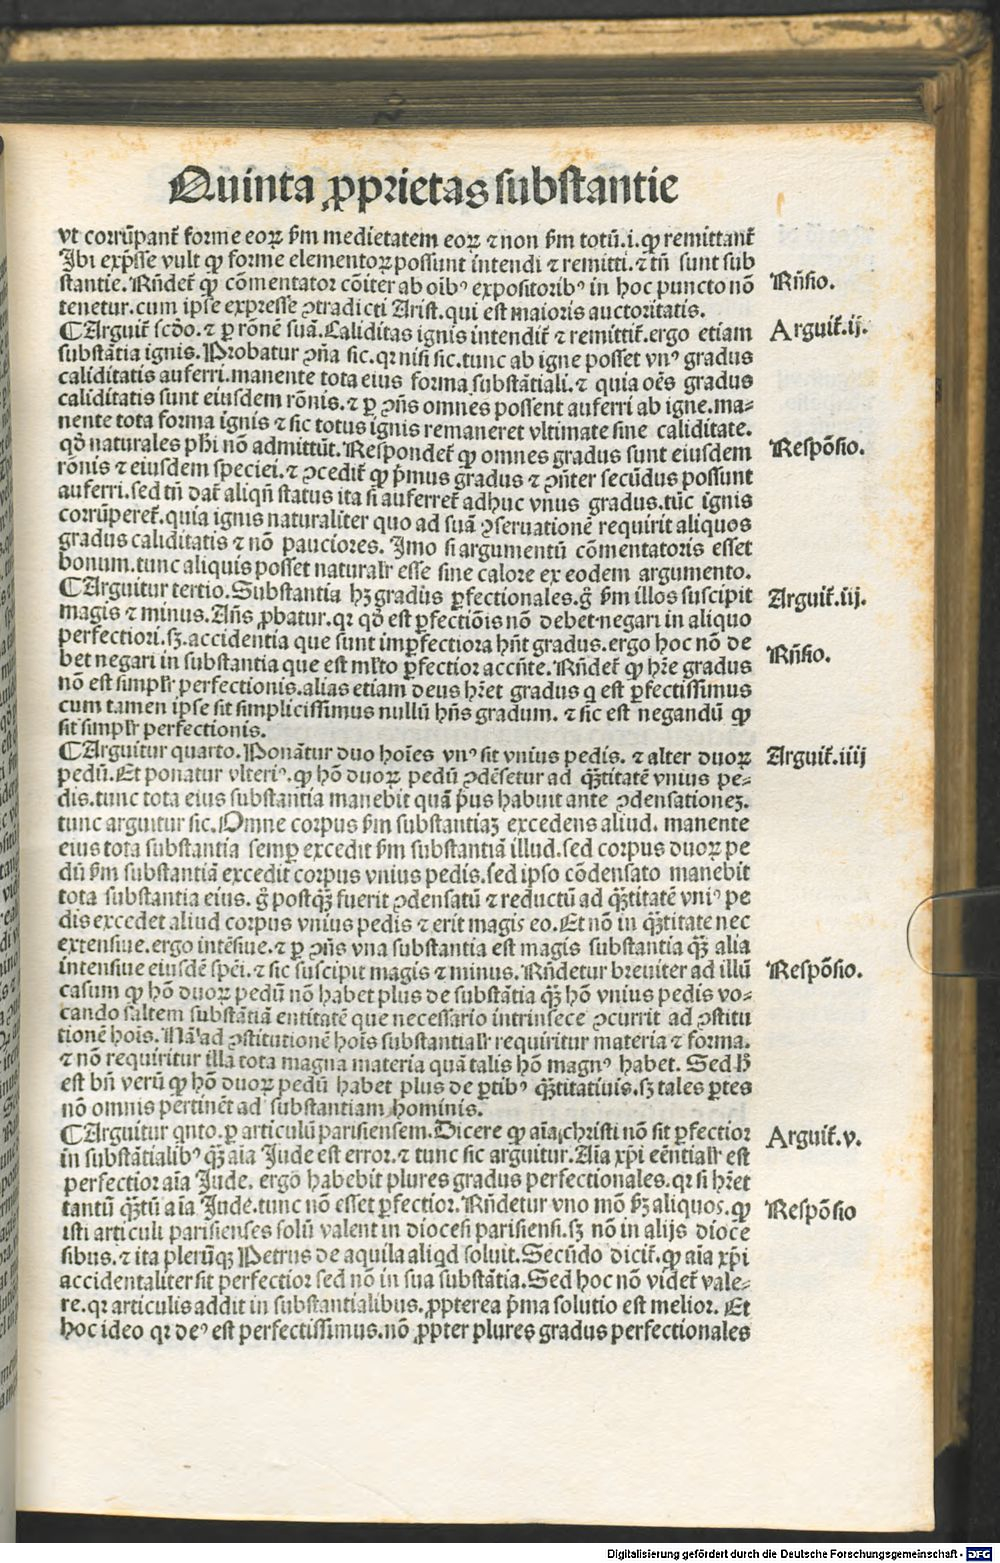 Quinta ꝓprietas substantie
vt corrūpant̄ forme eoꝝ ẜm medietatem eoꝝ ⁊ non ẜm totū.i.ꝙ remittant̄
Ibi exp̄sse vult ꝙ forme elementoꝝ possunt intendi ⁊ remitti.⁊ tn̄ sunt sub
stantie.Rn̄det̄ ꝙ cōmentator cōiter ab oībꝰ expositoribꝰ in hoc puncto nō
Rn̄sio.
tenetur.cum ipse expresse ꝯtradicti Arist.qui est maioris auctoritatis.
¶Arguit̄ scďo.⁊ ꝑ rōnē suā.Caliditas ignis intendit̄ ⁊ remittit̄.ergo etiam
Arguit̄.ij.
substātia ignis.Probatur ꝯña sic.qꝛ nisi sic.tunc ab igne posset vnꝰ gradus
caliditatis auferri.manente tota eius forma substātiali.⁊ quia oēs gradus
caliditatis sunt eiusdem rōnis.⁊ ꝑ ꝯn̄s omnes possent auferri ab igne.ma⸗
nente tota forma ignis ⁊ sic totus ignis remaneret vltimate sine caliditate.
qď naturales phi nō admittūt.Respondet̄ ꝙ omnes gradus sunt eiusdem
Respōsio.
rōnis ⁊ eiusdem speciei.⁊ ꝯcedit̄ ꝙ p̄mus gradus ⁊ ꝯn̄ter secūdus possunt
auferri.sed tn̄ dat̄ aliqn̄ status ita si auferret̄ adhuc vnus gradus.tūc ignis
corrūperet̄.quia ignis naturaliter quo ad suā ꝯseruationē requirit aliquos
gradus caliditatis ⁊ nō pauciores. Imo si argumentū cōmentatoris esset
bonum.tunc aliquis posset naturalr̄ esse sine calore ex eodem argumento.
¶Arguitur tertio.Substantia hꝫ gradus ꝑfectionales.g̊ ẜm illos suscipit
Arguit̄.iij.
magis ⁊ minus.Añs ꝓbatur.qꝛ qď est ꝑfectiōis nō debet negari in aliquo
perfectiori.sꝫ.accidentia que sunt imꝑfectiora hn̄t gradus.ergo hoc nō de
bet negari in substantia que est ml̄to ꝑfectior accn̄te.Rn̄det̄ ꝙ hr̄e gradus
Rn̄sio.
nō est simplr̄ perfectionis.alias etiam deus hr̄et gradus q est ꝑfectissimus
cum tamen ipse sit simplicissimus nullū hn̄s gradum.⁊ sic est negandū ꝙ
sit simplr̄ perfectionis.
¶Arguitur quarto.Ponātur duo hoīes vnꝰ sit vnius pedis.⁊ alter duoꝝ
Arguit̄.iiij
pedū.Et ponatur vlteriꝰ.ꝙ hō duoꝝ pedū ꝯdēsetur ad q̄ꝫtitatē vnius pe⸗
dis.tunc tota eius substantia manebit quā p̄us habuit ante ꝯdensationeꝫ.
tunc arguitur sic.Omne corpus ẜm substantiaꝫ excedens aliud. manente
eius tota substantia semꝑ excedit ẜm substantiā illud.sed corpus duoꝝ pe
dū ẜm substantiā excedit corpus vnius pedis.sed ipso cōdensato manebit
tota substantia eius.g̊ postq̄ꝫ fuerit ꝯdensatū ⁊ reductū ad q̄ꝫtitatē vniꝰ pe
dis excedet aliud corpus vnius pedis ⁊ erit magis eo.Et nō in q̄ꝫtitate nec
extensiue.ergo intēsiue.⁊ ꝑ ꝯn̄s vna substantia est magis substantia q̄ꝫ alia
intensiue eiusdē spēi.⁊ sic suscipit magis ⁊ minus.Rn̄detur breuiter ad illū
Respōsio.
casum ꝙ hō duoꝝ pedū nō habet plus de substātia q̄ꝫ hō vnius pedis vo⸗
cando saltem substātiā entitatē que necessario intrinsece ꝯcurrit ad ꝯstitu
tionē hoīs. Nā ad ꝯstitutionē hoīs substantialr̄ requiritur materia ⁊ forma.
⁊ nō requiritur illa tota magna materia quā talis hō magnꝰ habet. Sed ħ
est bn̄ verū ꝙ hō duoꝝ pedū habet plus de ꝑtibꝰ q̄ꝫtitatiuis.sꝫ tales ꝑtes
nō omnis pertinēt ad substantiam hominis.
¶Arguitur qnto.ꝑ articulū parisiensem.Dicere ꝙ aīa christi nō sit ꝑfectior
Arguit̄.v.
in substātialibꝰ q̄ꝫ aīa Jude est error.⁊ tunc sic arguitur.Aīa xp̄i eēntialr̄ est
perfectior aīa Jude. ergo habebit plures gradus perfectionales.qꝛ si hr̄et
tantū q̄ꝫtū aīa Jude.tunc nō esset ꝑfectior.Rn̄detur vno mō ẜꝫ aliquos.ꝙ
Respōsio
isti articuli parisienses solū valent in diocesi parisiensi.sꝫ nō in alijs dioce
sibus.⁊ ita plerūqꝫ Petrus de aquila aliqd soluit.Secūdo dicit̄.ꝙ aīa xp̄i
accidentaliter sit perfectior sed nō in sua substātia.Sed hoc nō videt̄ vale⸗
re.qꝛ articulis addit in substantialibus.ꝓpterea p̄ma solutio est melior. Et
hoc ideo qꝛ deꝰ est perfectissimus.nō ꝓpter plures gradus perfectionales
Digitalisierung gefördert durch die Deutsche Forschungsgemeinschaft - DFG